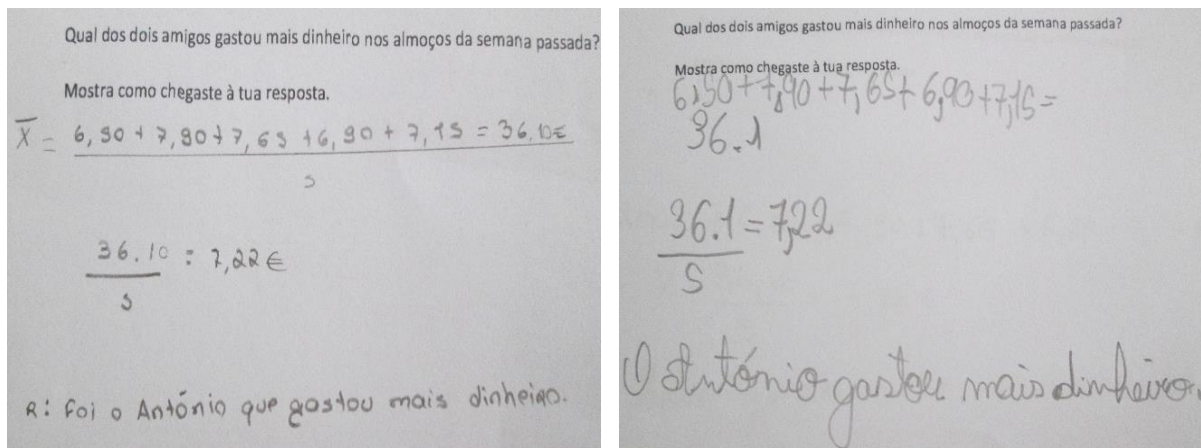 Qual dos dois amigos gastou mais dinheiro nos almoços da semana passada?
Mostra como chegaste à tua resposta.
X̅ = 6,50 + 7,90 + 7,65 + 6,90 + 7,15 = 36.10€
5
36.10 = 7,22€
5
R: Foi o António que gastou mais dinheiro.
Qual dos dois amigos gastou mais dinheiro nos almoços da semana passada?
Mostra como chegaste à tua resposta.
6,50+7,90+7,65+6,90+7,15=
36.1
36.1=7,22
5
O António gastou mais dinheiro.